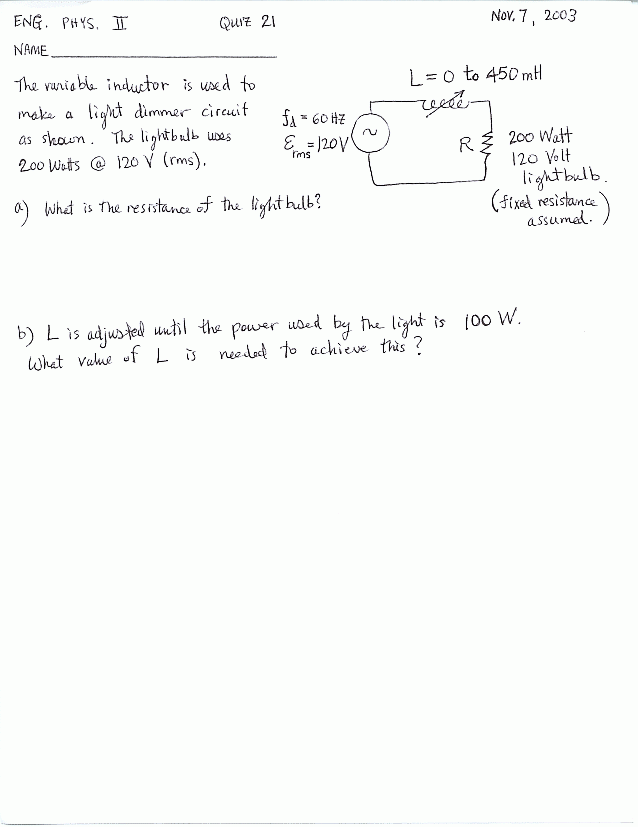 ENG. PHYS. II
QUIZ 21
NOV. 7, 2003
NAME
The variable inductor is used to
make a light dimmer circuit
as shown. The lightbulb uses
200 Watts @ 120 V (rms).
L = 0 to 450 mH
fd = 60 HZ
Ɛrms = 120V
~
R
200 Watt
120 Volt
lightbulb.
(fixed resistance
assumed.)
a) What is the resistance of the lightbulb?
b) L is adjusted until the power used by the light is 100 W.
What value of L is needed to achieve this?